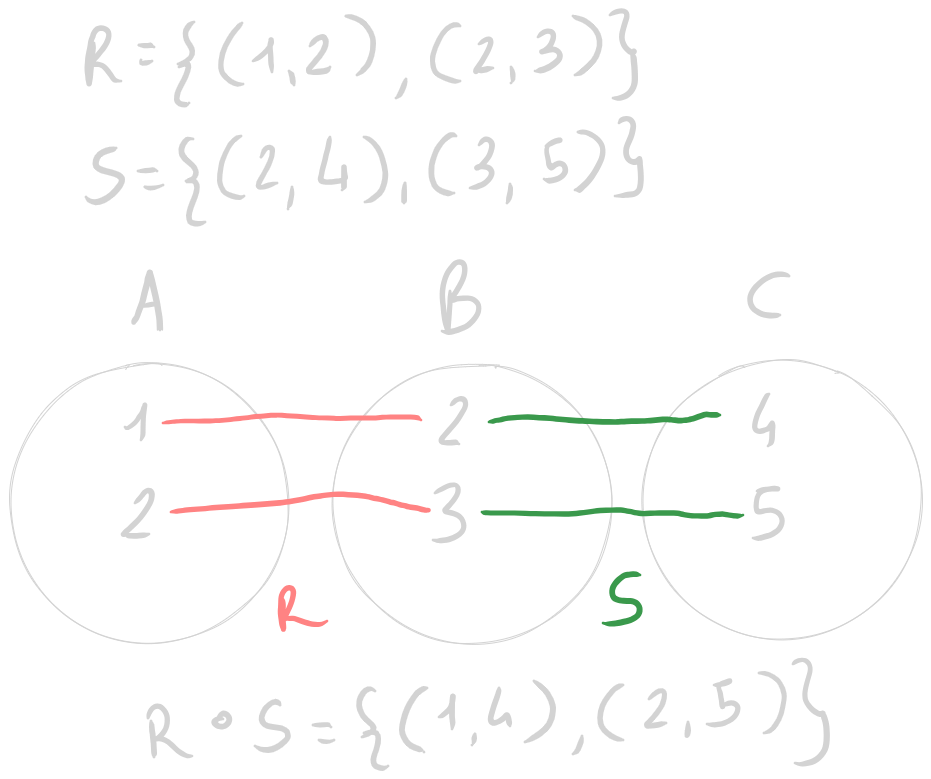 R={(1,2),(2,3)}
S={(2,4),(3,5)}
A B C
1 2 4
2 3 5
R S
R∘S={(1,4),(2,5)}